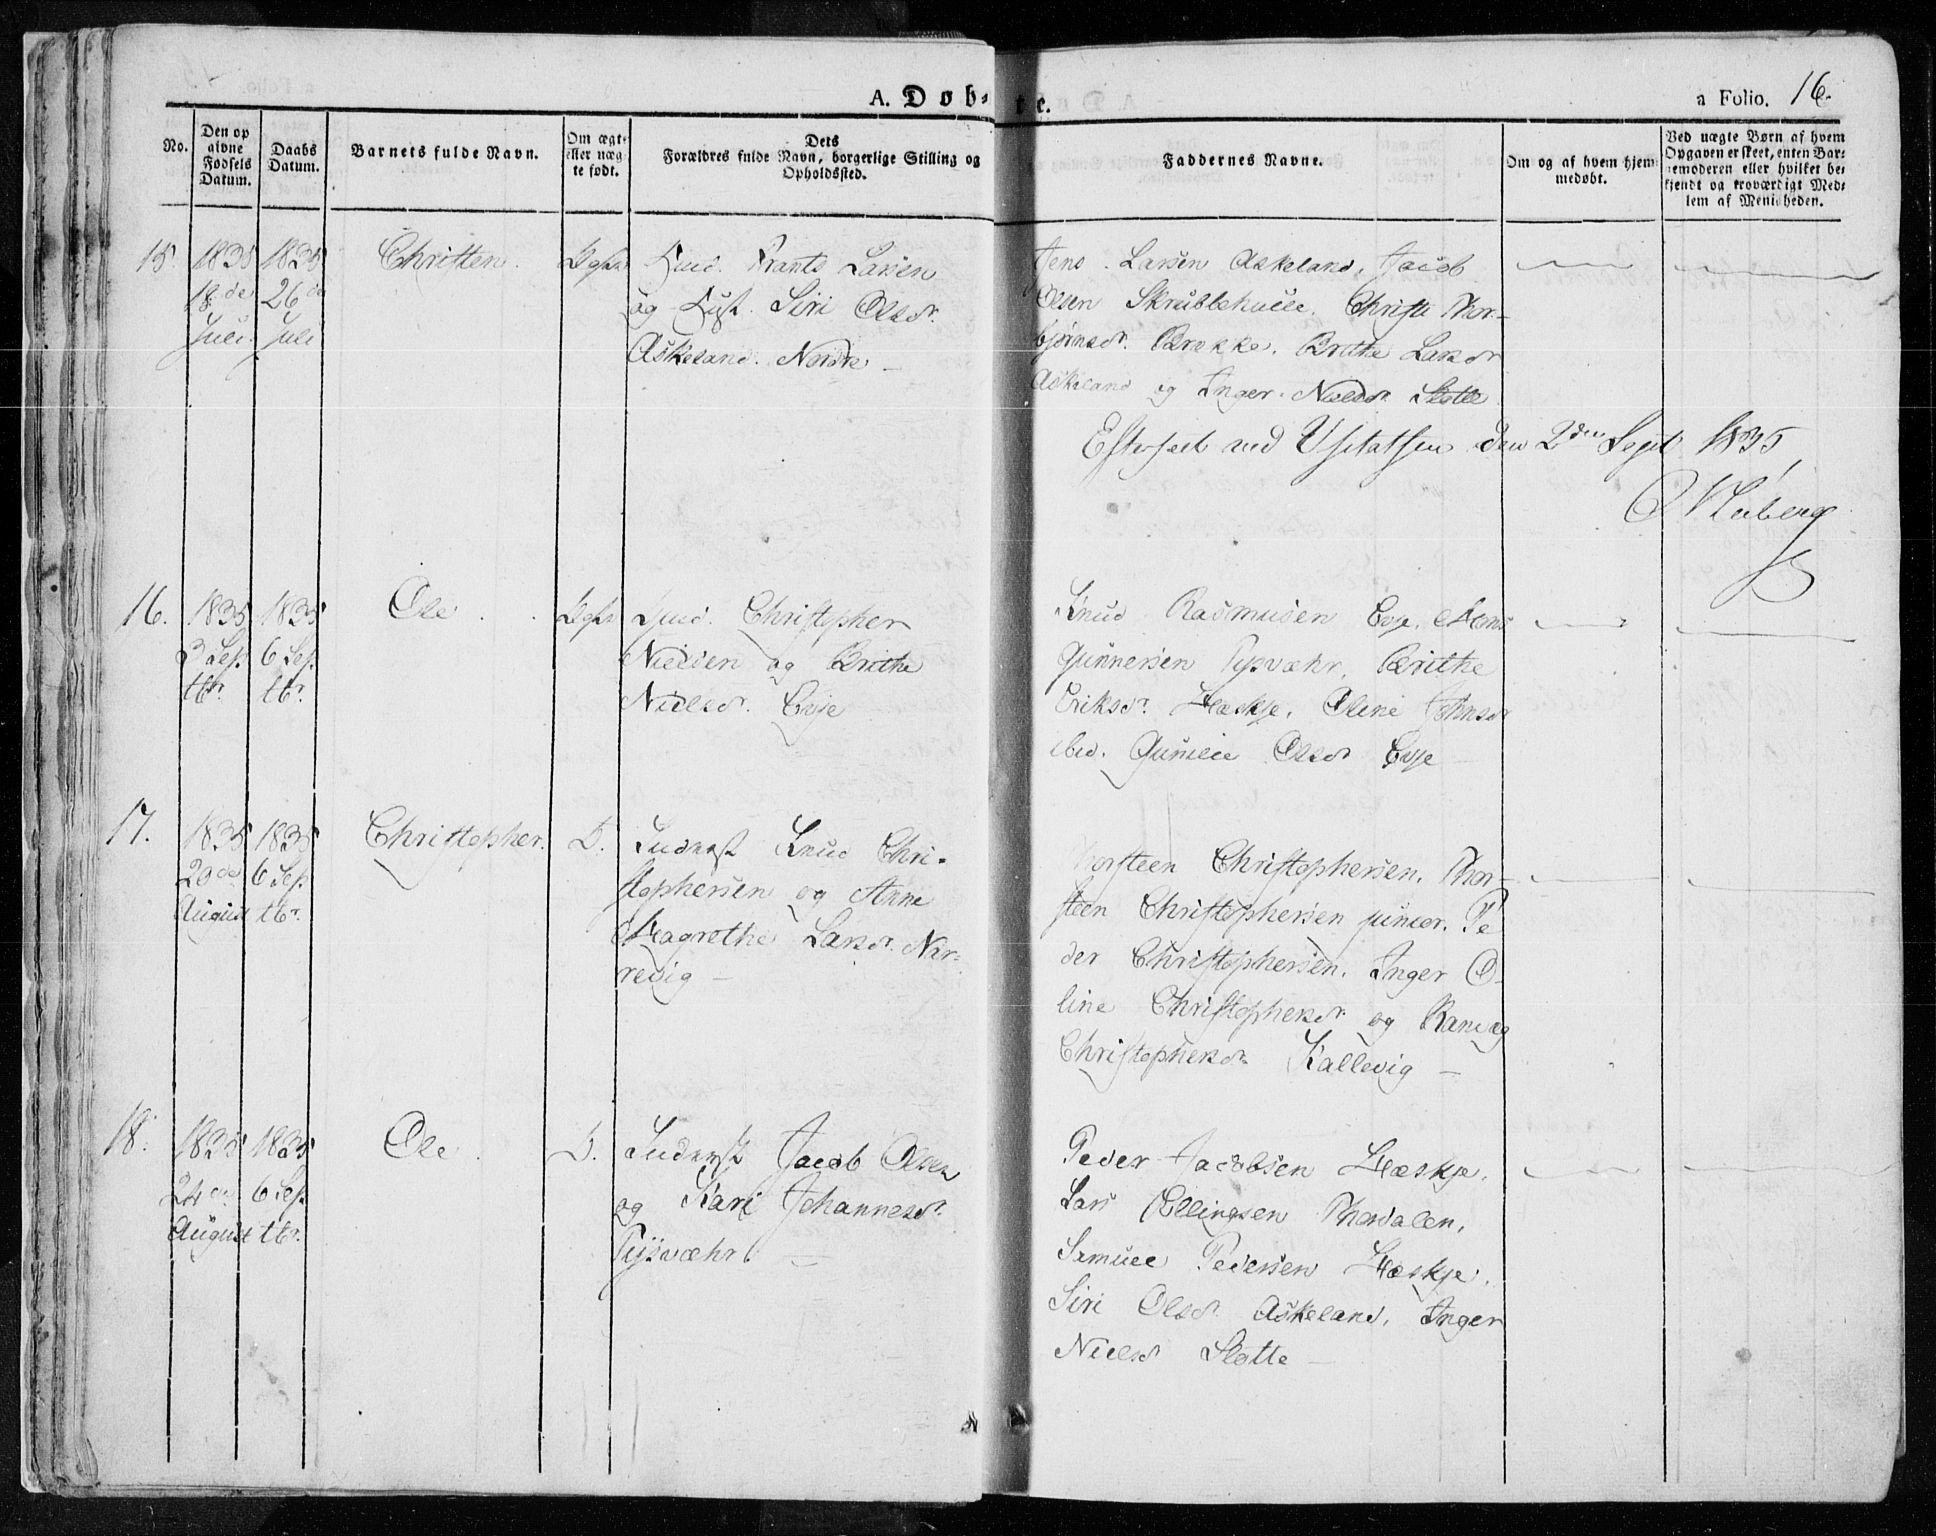 A. Døb-
te.
a Folio. 16.
No.
Den op
givne
Fødsels
Datum.
Daabs
Datum.
Barnets fulde Navn.
Om ægt-
eller uæg-
te født.
Dets
Forældres fulde Navn, borgerlige Stilling og
Opholdssted.
Faddernes Navne.
Om og af hvem hjem-
medøbt.
Ved uægte Børn af hvem
Opgaven er skeet, enten Bar-
nemoderen eller hvilket be-
kjendt og troværdigt Med-
lem af Menigheden.
15.
1835
18de
Juli.
1835
26de
Juli
Christen.
Frants Larsen
og Siri Olsdr.
Askeland. Nordre
Jens Larsen Askeland, Jacob
Olsen Skrubbehulle. Christi Thor-
bjørnsdr. Brække. Brithe Larsdr
Askeland og Inger Nielsdr. Sløtte
den 2den Sept 1835
16.
1835
3 Sep
tbr.
1835
6 Sep
tbr.
Ole
Christopher
Nielsen og Brithe
Nielsdr. Evje
Knud Rasmusen Evje, Mons
Gunnersen Tysvæhr, Brithe
Eriksdr. Hæskje, Olene Johnsdr
ibid. Olsdr Evje
17.
1835
20de
August
1835
6 Sep
tbr.
Christopher.
D.
Inderst Knud Chri-
stophersen og Anne
Magrethe Larsdr. Nør-
revig
Thorsteen Christophersen, Thor-
steen Christophersen junior. Pe
der Christophersen. Inger O-
line Christophersdr og Ranvæg
Christophersdr Kallevig
18.
1835
24de
August
1835
6 Sep
tbr.
Ole
D.
Inderst Jacob Olsen
og Kari Johannesdr.
Tysvæhr
Peder Jacobsen Hæskje,
Lars Ellingsen Thordalen,
Samuel Pedersen Hæskje,
Siri Olsdr Askeland, Inger
Nielsdr Sløtte